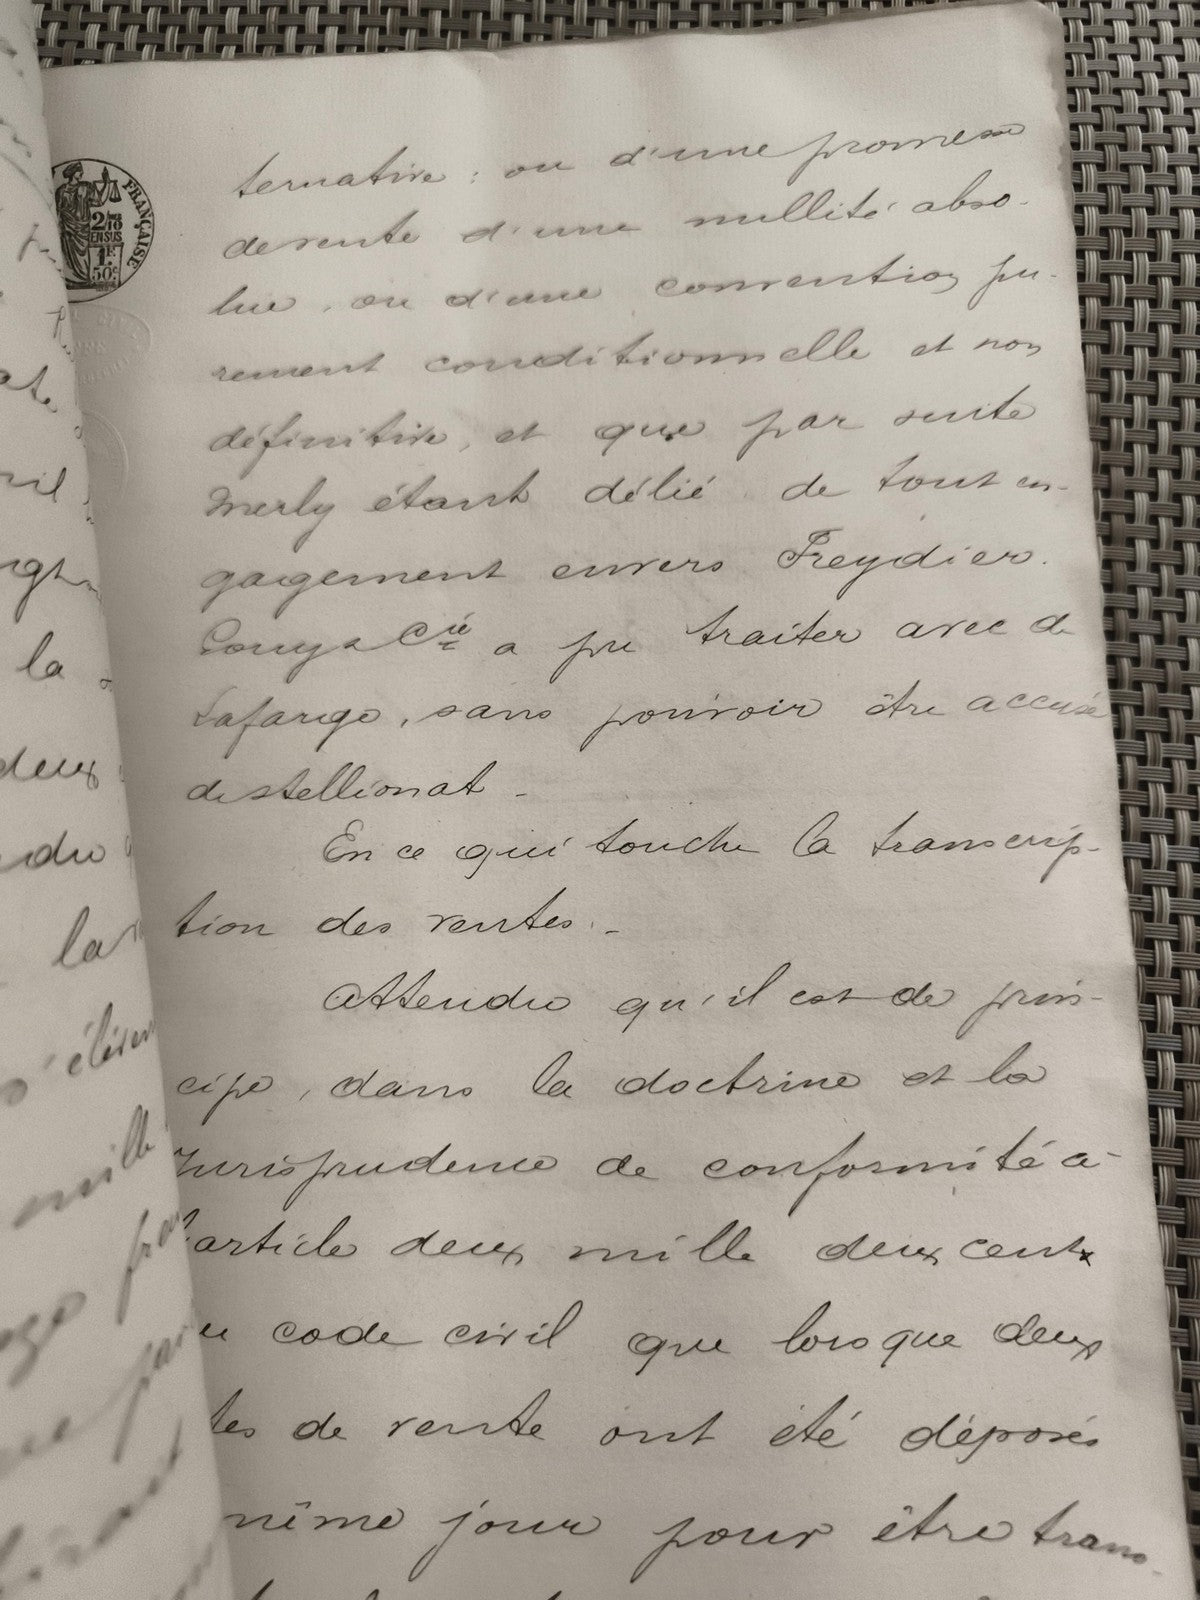 FRANÇAISE
2/10
EN SUS
1F
50c
ternative : ou d'une promesse
de vente d'une nullité abso-
lue, ou d'une convention pu-
rement conditionnelle et non
définitive, et que par suite
Merly étant délié de tout en-
gagement envers Freydier.
Couy & Cie a pu traiter avec de
Lafarge, sans pouvoir être accusé
de stellionat -
En ce qui touche la transcrip-
tion des ventes. -
Attendu qu'il est de prin-
cipe, dans la doctrine et la
Jurisprudence de conformité à
l'article deux mille deux cent
code civil que lorsque deux
tes de vente ont été déposés
même jour pour être trans
la
deux
mille